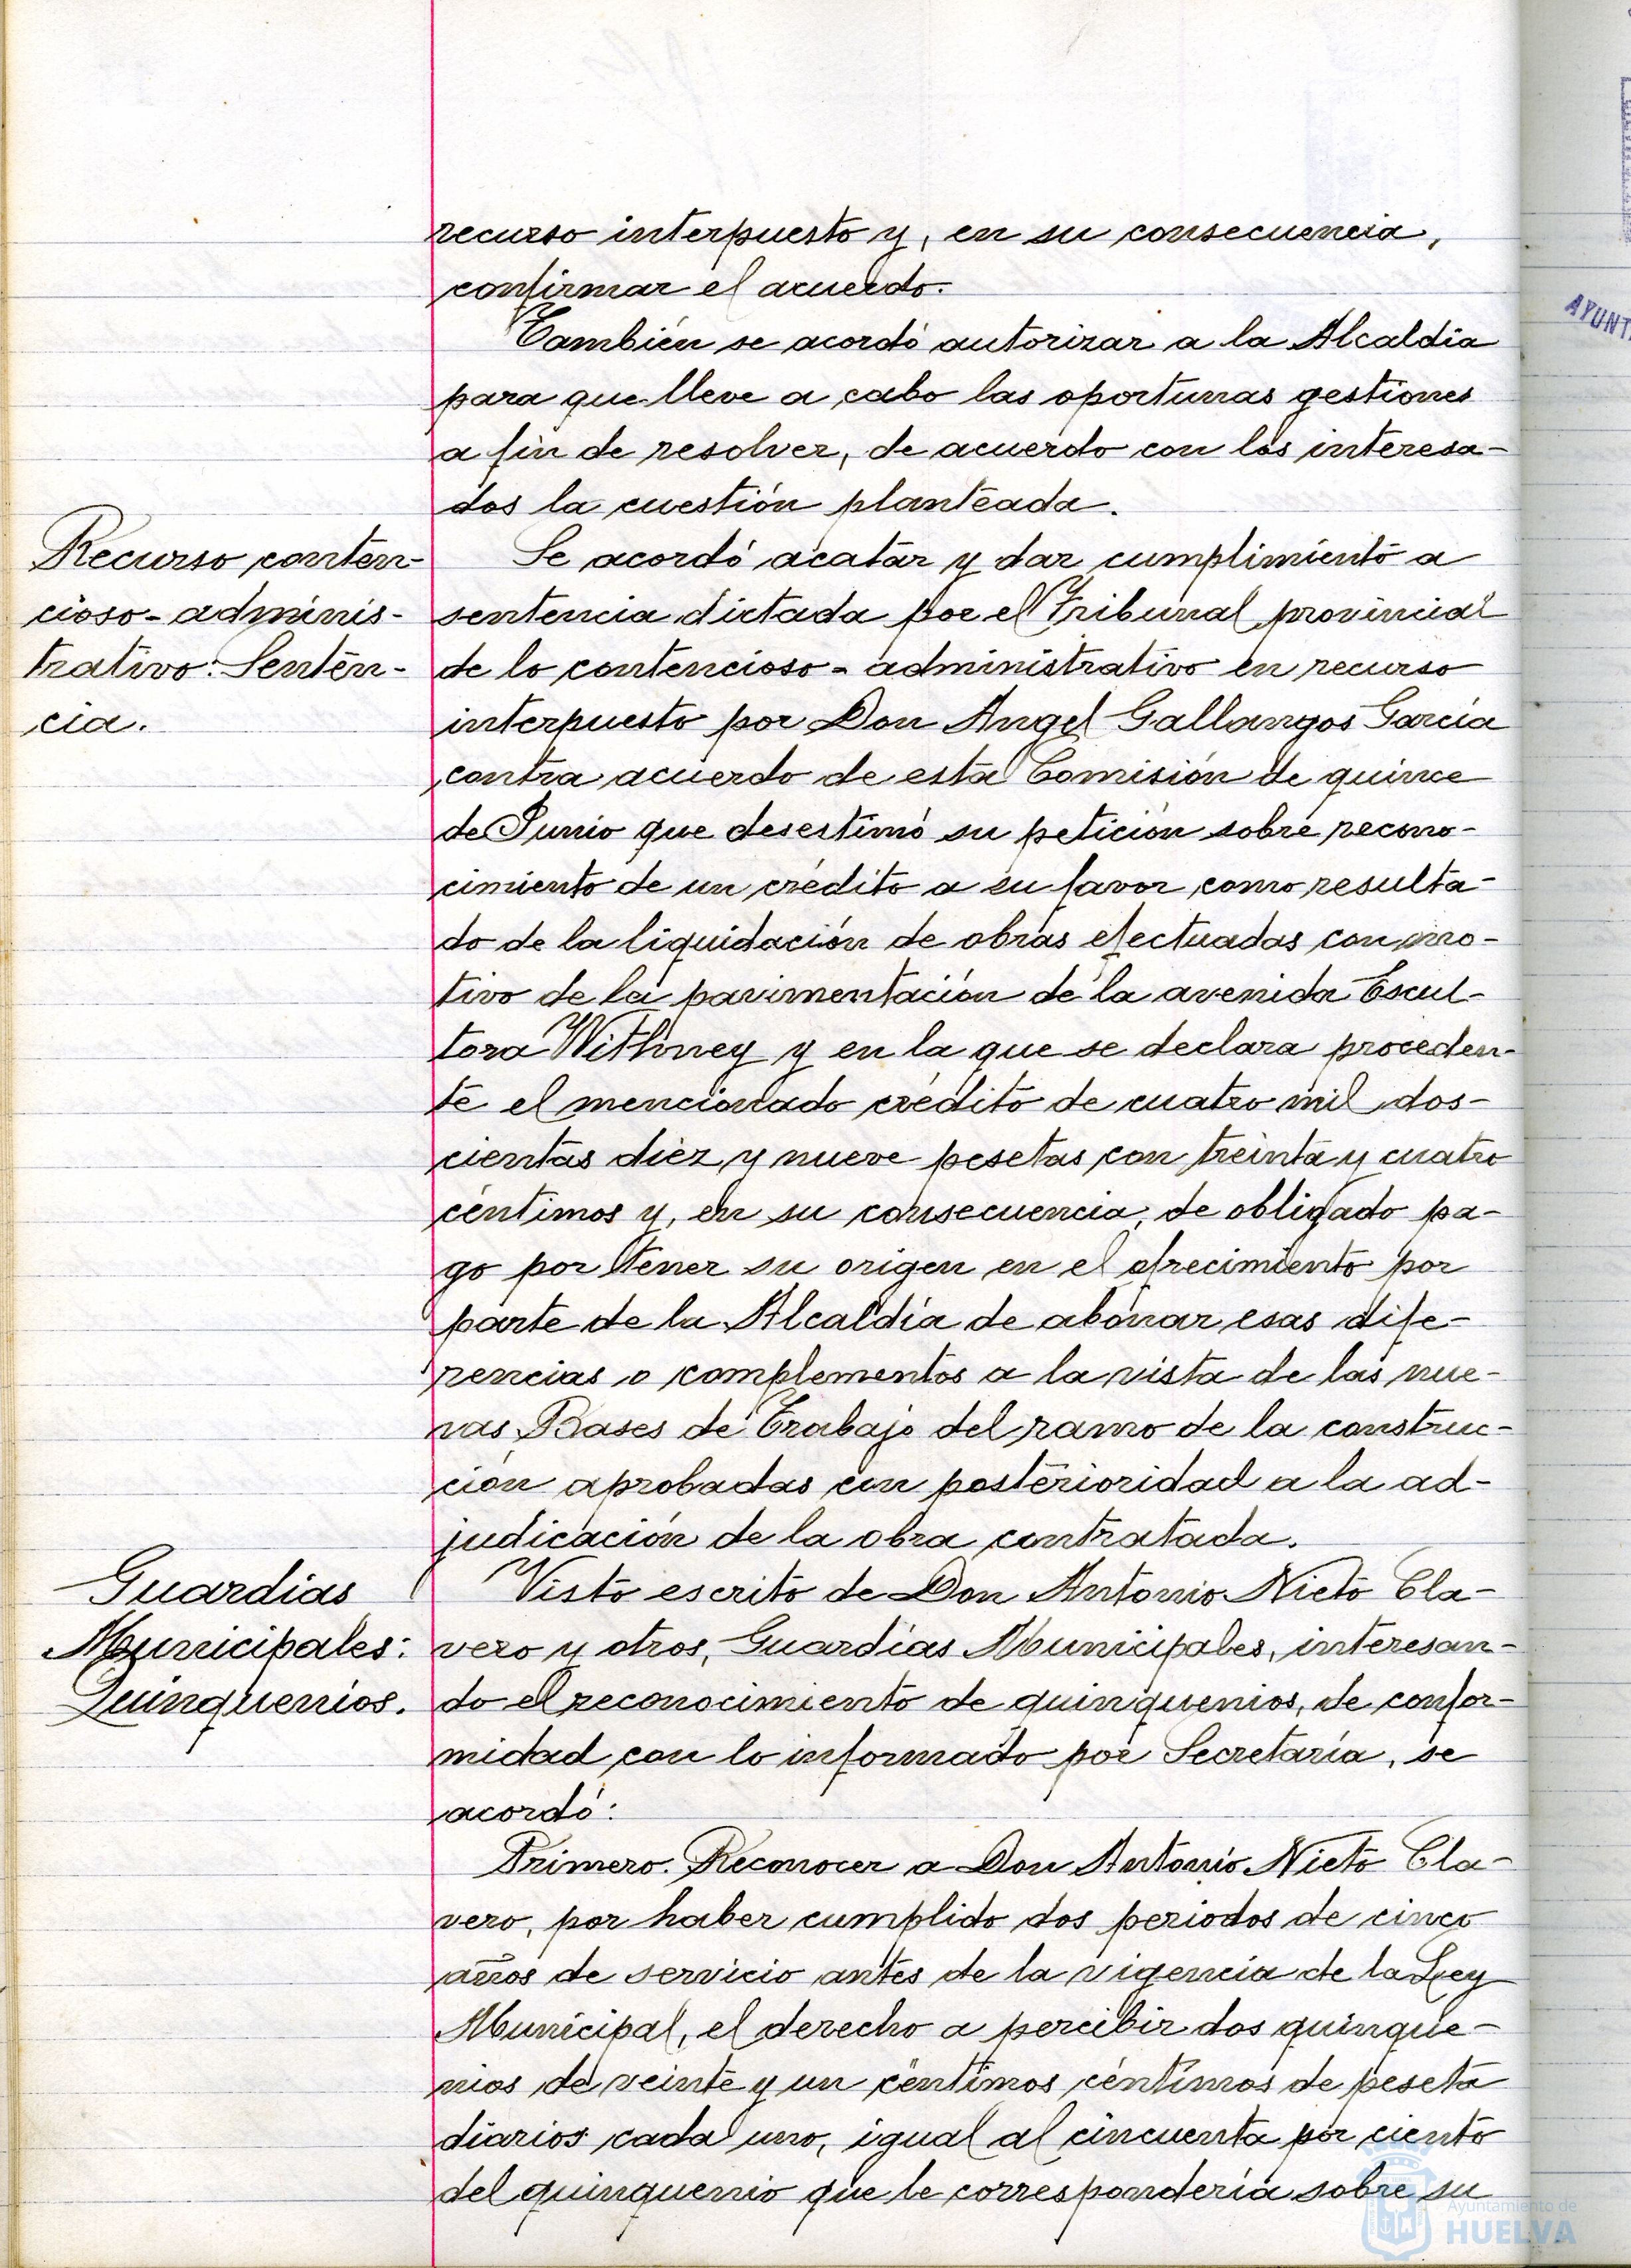 recurso interpuesto y, en su consecuencia,
confirmar el acuerdo.
También se acordó autorizar a la Alcaldía
para que lleve a cabo las oportunas gestiones
a fin de resolver, de acuerdo con los interesa-
dos la cuestión planteada.
Recurso conten-
cioso-adminis-
trativo: Senten-
cia.
Se acordó acatar y dar cumplimiento a
sentencia dictada por el Tribunal provincial
de lo contencioso-administrativo en recurso
interpuesto por Don Angel Gallangos García
contra acuerdo de esta Comisión de quince
de Junio que desestimó su petición sobre recono-
cimiento de un crédito a su favor como resulta-
do de la liquidación de obras efectuadas con mo-
tivo de la pavimentación de la avenida Escul-
tora Withney y en la que se declara proceden-
te el mencionado crédito de cuatro mil dos-
cientas diez y nueve pesetas con treinta y cuatro
céntimos y, en su consecuencia, de obligado pa-
go por tener su origen en el ofrecimiento por
parte de la Alcaldía de abonar esas dife-
rencias o complementos a la vista de las nue-
vas Bases de Trabajo del ramo de la construc-
ción aprobadas con posterioridad a la ad-
judicación de la obra contratada.
Guardias
Municipales:
Quinquenios.
Visto escrito de Don Antonio Nieto Cla-
vero y otros, Guardias Municipales, interesan-
do el reconocimiento de quinquenios, de confor-
midad con lo informado por Secretaría, se
acordó:
Primero. Reconocer a Don Antonio Nieto Cla-
vero, por haber cumplido dos periodos de cinco
años de servicio antes de la vigencia de la Ley
Municipal, el derecho a percibir dos quinque-
nios de veinte y un céntimos céntimos de peseta
diarios cada uno, igual al cincuenta por ciento
del quinquenio que le correspondería sobre su
AYUNT
Ayuntamiento de
HUELVA